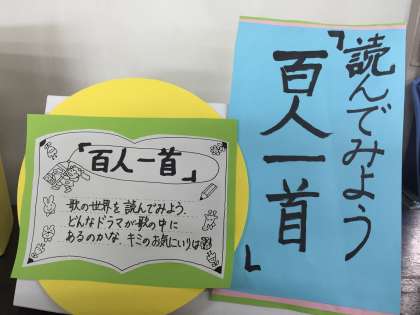 読んでみよう
「百人一首」
「百人一首」
歌の世界を読んでみよう.
どんなドラマが歌の中に
あるのかな.キミのお気にいりは